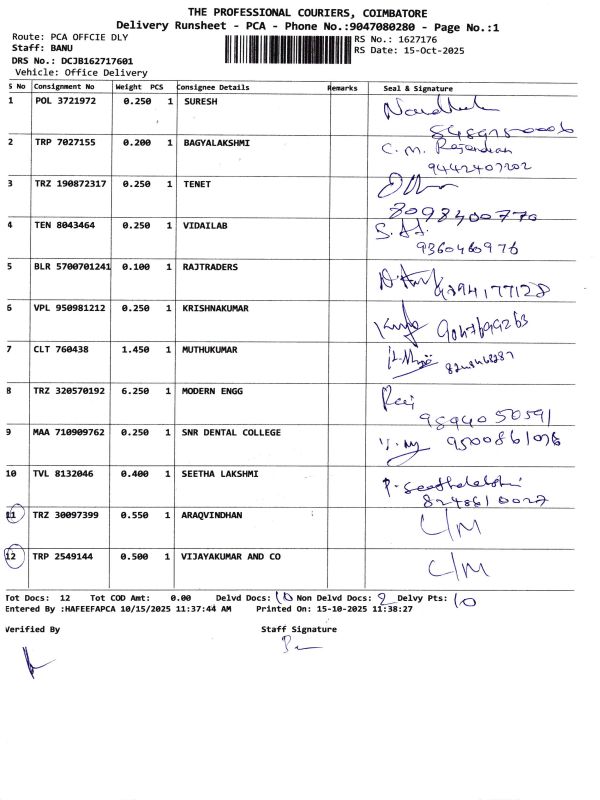 THE PROFESSIONAL COURIERS, COIMBATORE
Delivery Runsheet - PCA - Phone No.:9047080280 - Page No.:1
Route: PCA OFFCIE DLY RS No.: 1627176
Staff: BANU RS Date: 15-Oct-2025
DRS No.: DCJB162717601
Vehicle: Office Delivery
S No Consignment No Weight PCS Consignee Details Remarks Seal & Signature
1 POL 3721972 0.250 1 SURESH
2 TRP 7027155 0.200 1 BAGYALAKSHMI C. M. Rajendran
9442407202
3 TRZ 190872317 0.250 1 TENET
8098400770
4 TEN 8043464 0.250 1 VIDAILAB
9360460976
5 BLR 5700701241 0.100 1 RAJTRADERS
6 VPL 950981212 0.250 1 KRISHNAKUMAR
7 CLT 760438 1.450 1 MUTHUKUMAR
8 TRZ 320570192 6.250 1 MODERN ENGG Raj
9894050591
9 MAA 710909762 0.250 1 SNR DENTAL COLLEGE
10 TVL 8132046 0.400 1 SEETHA LAKSHMI P. Seethalakshmi
8248610027
11 TRZ 30097399 0.550 1 ARAQVINDHAN C/M
12 TRP 2549144 0.500 1 VIJAYAKUMAR AND CO C/M
Tot Docs: 12 Tot COD Amt: 0.00 Delvd Docs: 10 Non Delvd Docs: 2 Delvy Pts: 10
Entered By :HAFEEFAPCA 10/15/2025 11:37:44 AM Printed On: 15-10-2025 11:38:27
Verified By Staff Signature